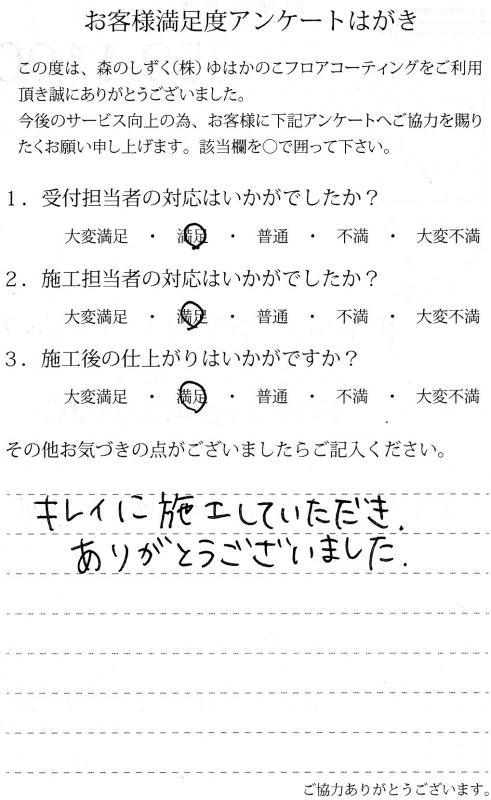 お客様満足度アンケートはがき
この度は、森のしずく(株)ゆはかのこフロアコーティングをご利用
頂き誠にありがとうございました。
今後のサービス向上の為、お客様に下記アンケートへご協力を賜り
たくお願い申し上げます。該当欄を○で囲って下さい。
1．受付担当者の対応はいかがでしたか？
大変満足 ・ 満足 ・ 普通 ・ 不満 ・ 大変不満
2．施工担当者の対応はいかがでしたか？
大変満足 ・ 満足 ・ 普通 ・ 不満 ・ 大変不満
3．施工後の仕上がりはいかがですか？
大変満足 ・ 満足 ・ 普通 ・ 不満 ・ 大変不満
その他お気づきの点がございましたらご記入ください。
キレイに施工していただき、
ありがとうございました。
ご協力ありがとうございます。